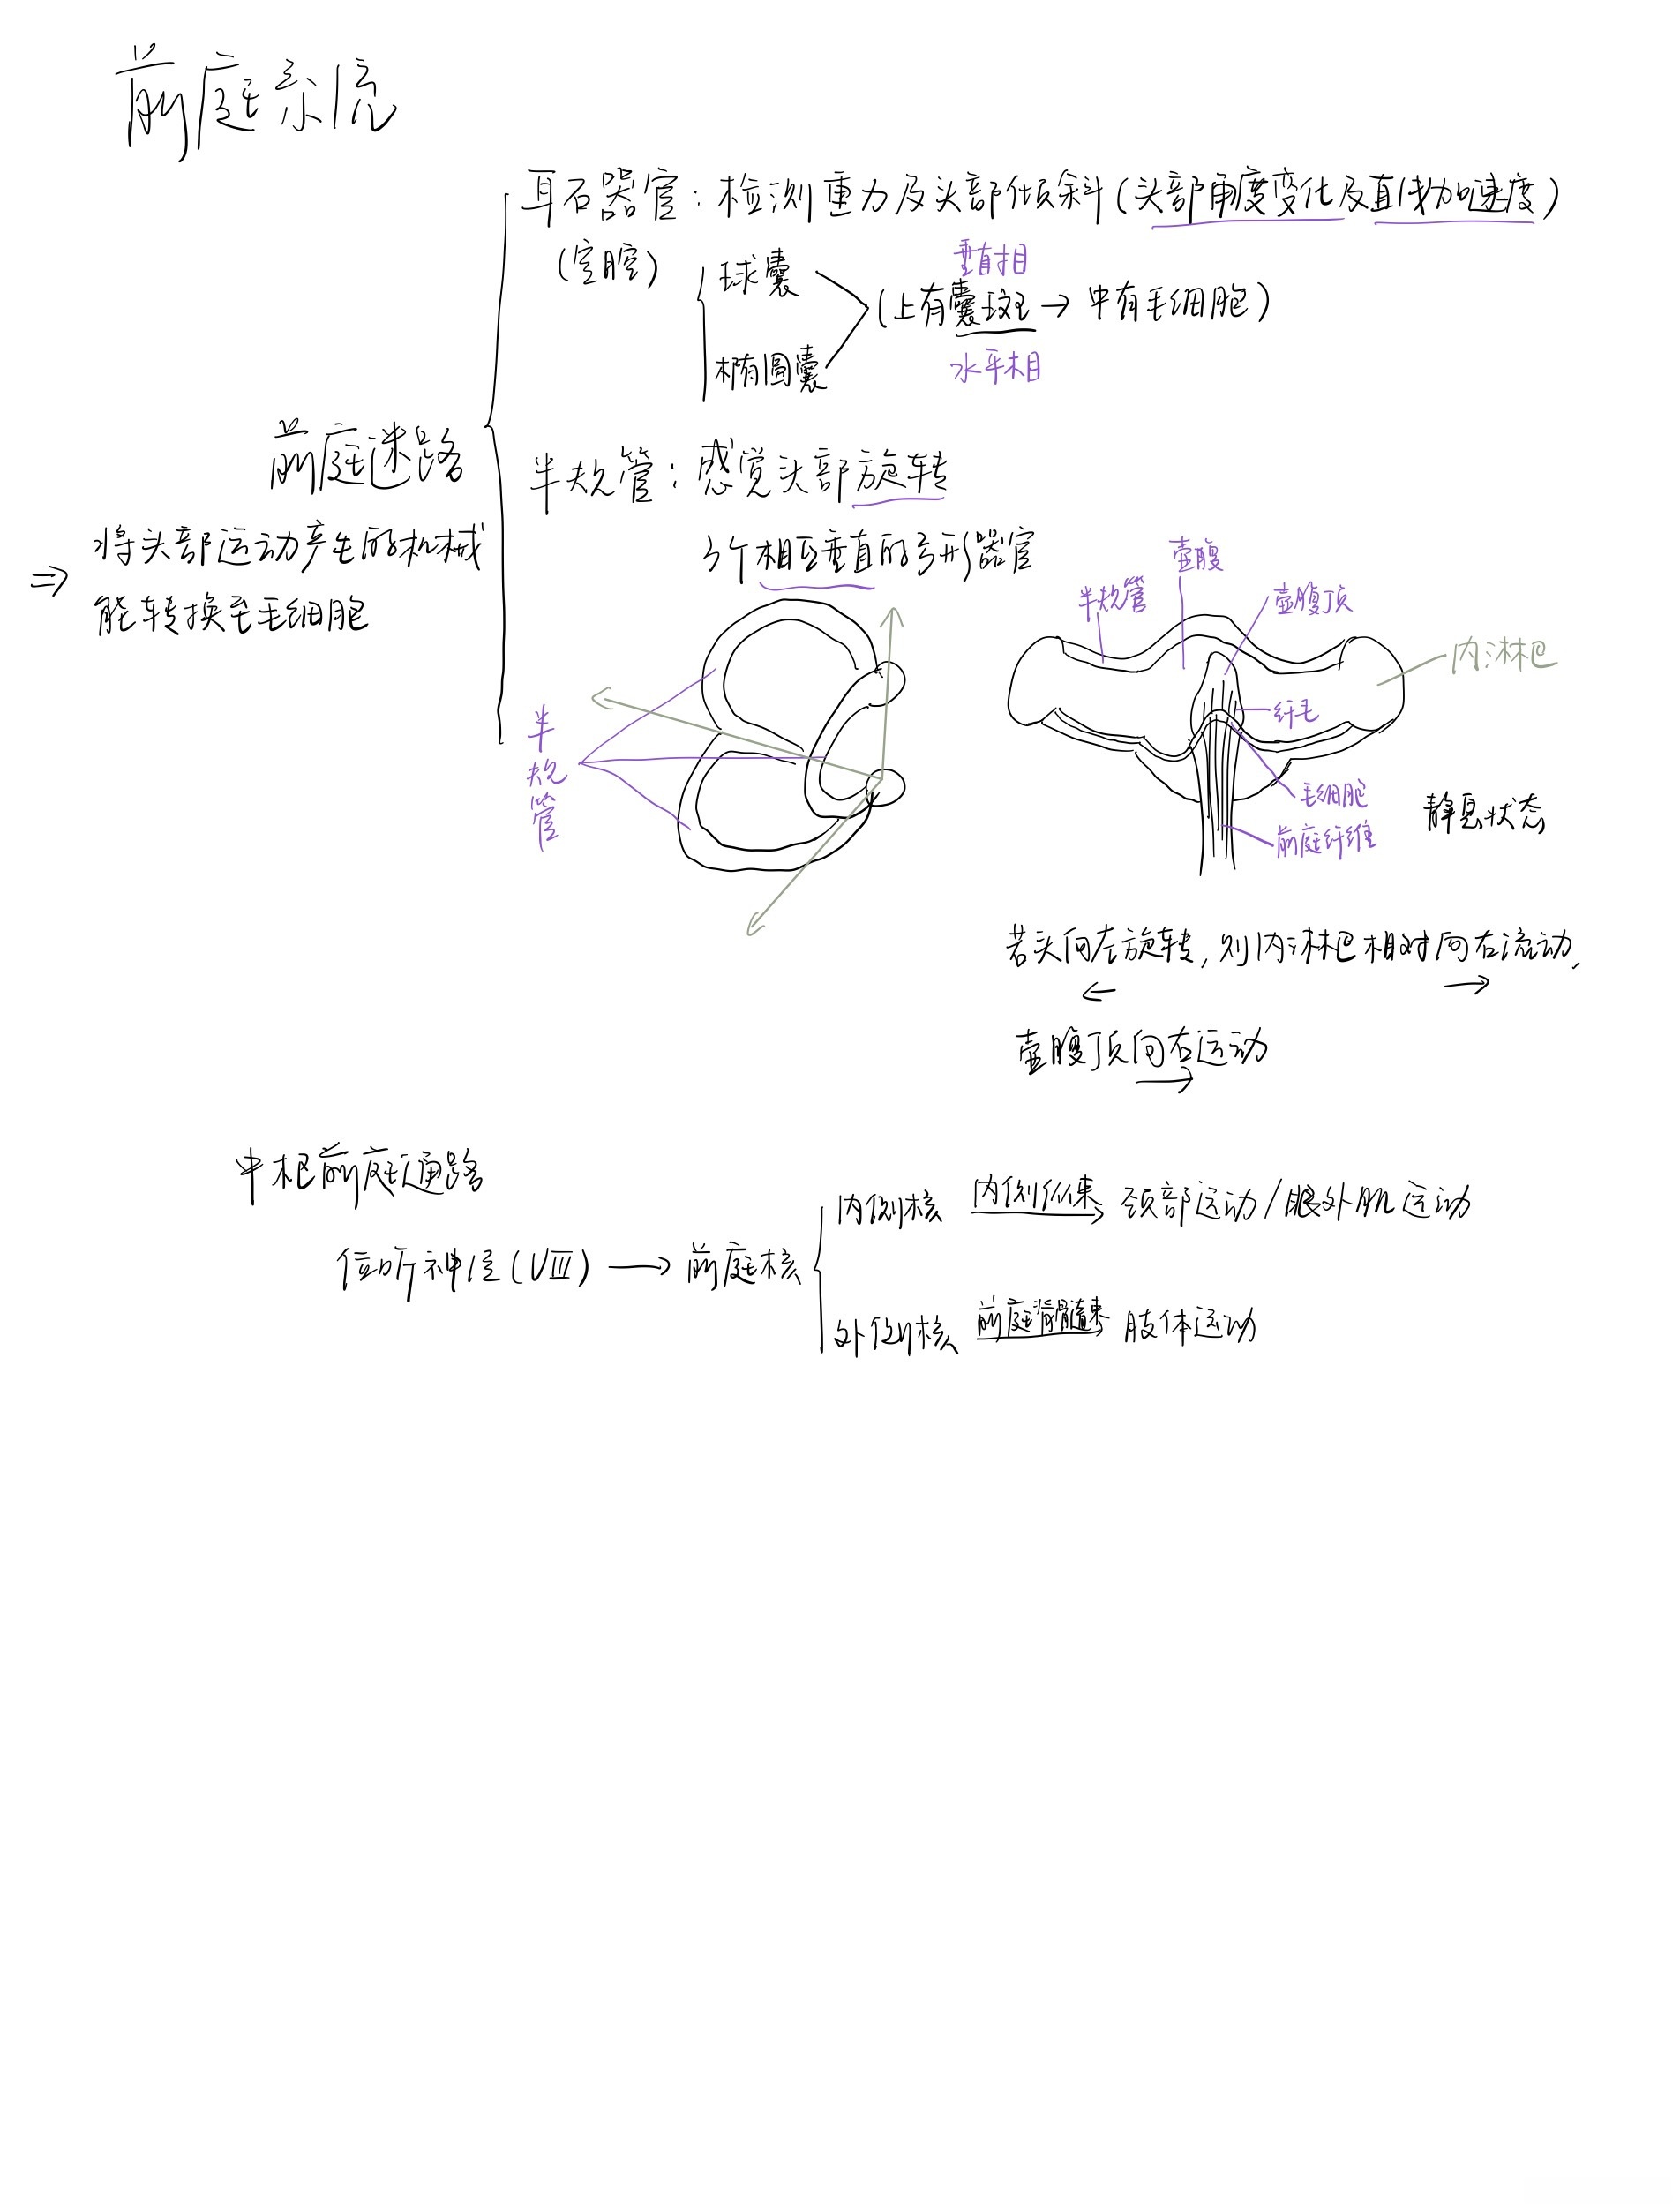 前庭系统
耳石器官：检测重力及头部倾斜（头部角度变化及直线加速度）
（空腔）
球囊
垂直相
（上有囊斑→中有毛细胞）
椭圆囊
水平相
前庭迷路
半规管：感觉头部旋转
⇒ 将头部运动产生的机械
能转换至毛细胞
3个相互垂直的弓形器官
半规管
半规管
壶腹
壶腹顶
内淋巴
纤毛
毛细胞
前庭纤维
静息状态
若头向左旋转，则内淋巴相对向右流动，
← →
壶腹顶向右运动
→
中枢前庭通路
位听神经（VIII）→前庭核
内侧核 内侧纵束→ 颈部运动/眼外肌运动
外侧核 前庭脊髓束→ 肢体运动